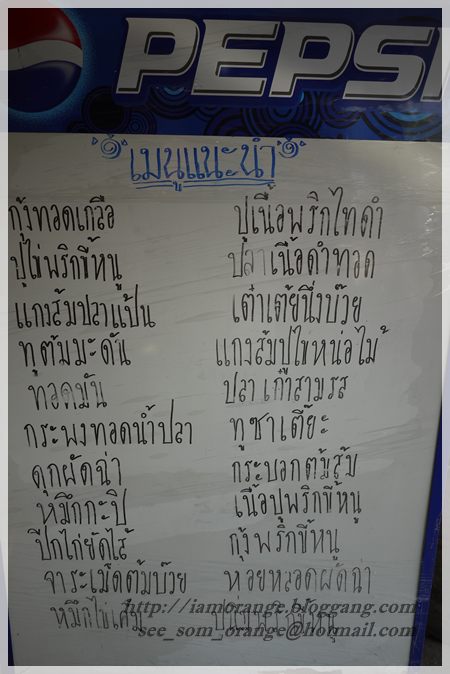 PEPSI
เมนูแนะนำ
กุ้งทอดเกลือ
ปูไข่พริกขี้หนู
แกงส้มปลาแป้น
ทูต้มมะดัน
ทอดมัน
กระพงทอดน้ำปลา
ดุกผัดฉ่า
หมึกกะปิ
ปีกไก่ยัดไส้
จาระเม็ดต้มบ๊วย
หมึกไข่เค็ม
ปูเนื้อพริกไทดำ
ปลาเนื้อดำทอด
เต๋าเต้ยนึ่งบ๊วย
แกงส้มปูไข่หน่อไม้
ปลาเก๋าสามรส
ทูซาเตี๊ยะ
กระบอกต้มส้ม
เนื้อปูพริกขี้หนู
กุ้งพริกขี้หนู
หอยหลอดผัดฉ่า
http://iamorange.bloggang.com
see_som_orange@hotmail.com